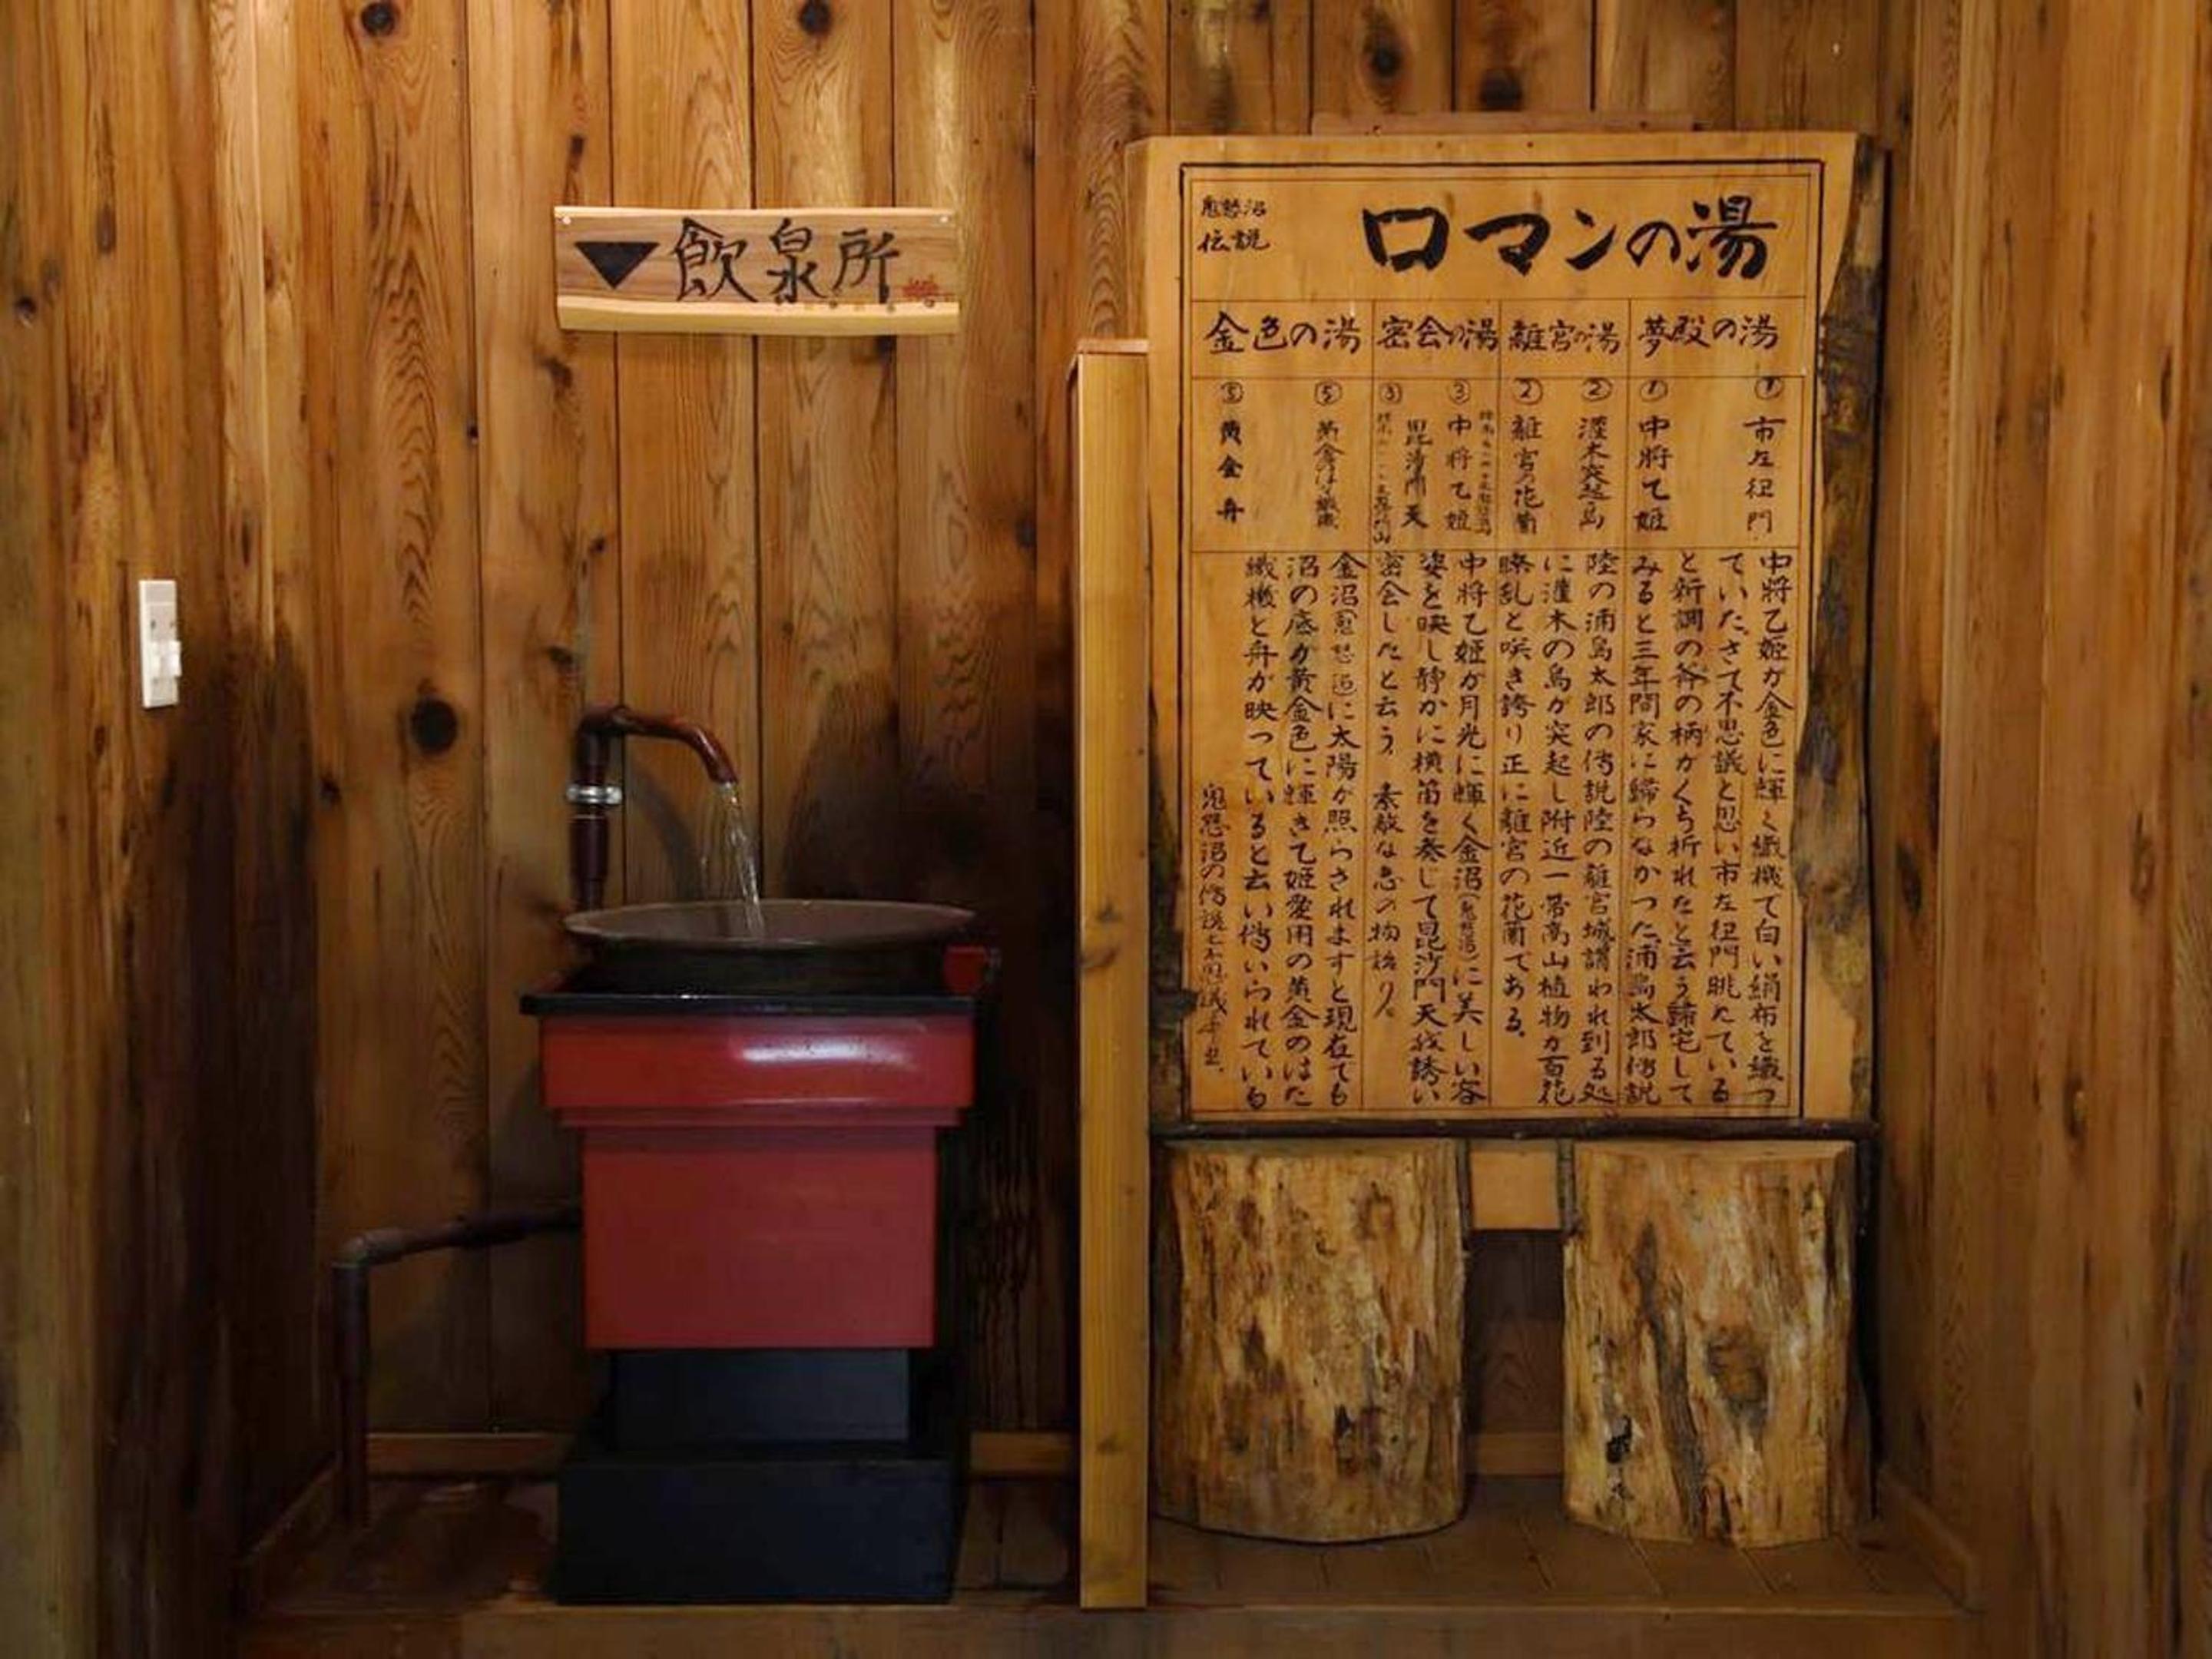 ▼飲泉所
ロマンの湯
鬼怒沼
伝説
夢殿の湯
離宮の湯
密会の湯
金色の湯
① 市左衽門
① 中将乙姫
② 灌木突起島
② 離宮の花園
③ 中将乙姫
毘沙門天
⑤ 黄金のはた織機
⑤ 黄金舟
中将乙姫が金色に輝く織機で白い絹布を織つ
ていた。さて不思議と思い市左衽門眺たている
と新調の斧の柄がくち折れたと云う歸宅して
みると三年間家に歸らなかつた浦島太郎傳説
陸の浦島太郎の傳説陸の離宮城謂われ到る処
に灌木の島が突起し附近一帯高山植物が百花
瞭乱と咲き誇り正に離宮の花園である。
中将乙姫が月光に輝く金沼(鬼怒沼)に美しい容
姿を映し静かに横笛を奏じて毘沙門天を誘い
密会したと云う。素敵な恋の物語り。
金沼(鬼怒沼)に太陽が照らされますと現在でも
沼の底が黄金色に輝きて姫愛用の黄金のはた
織機と舟が映っていると云い傳いられている
鬼怒沼の傳説七不思議